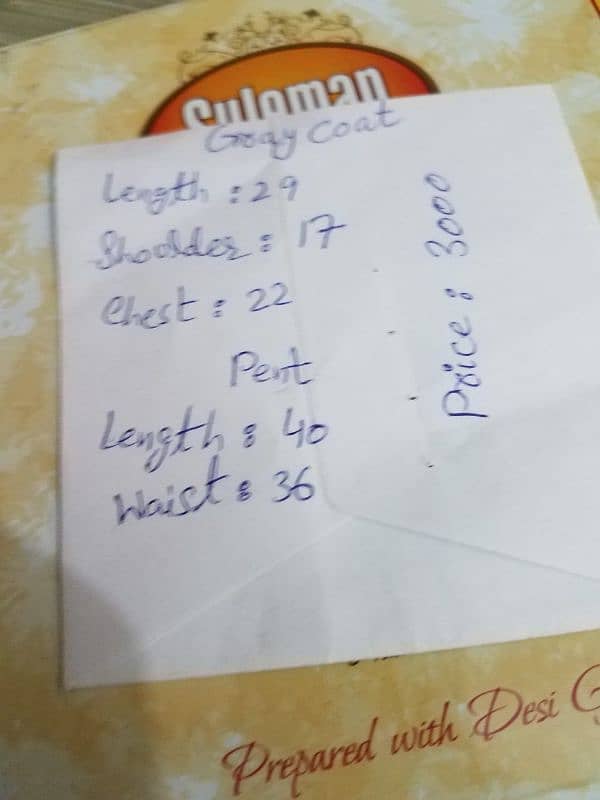 Suleman
Gray Coat
Length : 29
Shoolder : 17
Chest : 22
Pent
Length : 40
Waist : 36
Price : 3000
Prepared with Desi